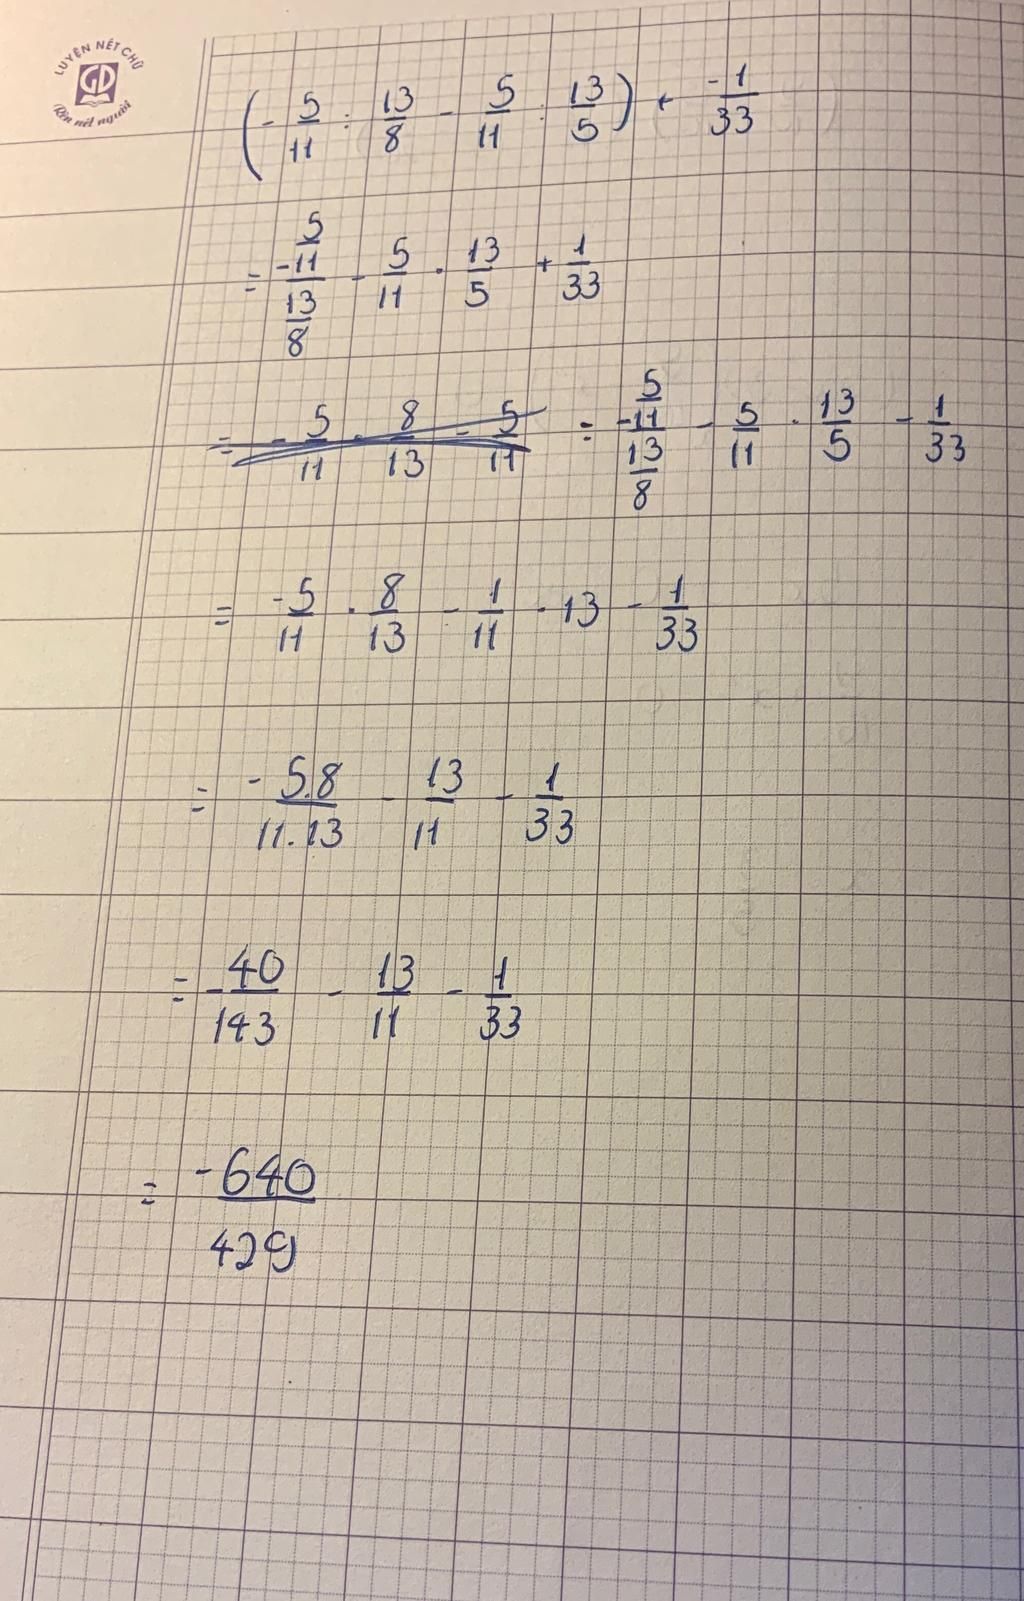 LUYỆN NÉT CHỮ
GD
Rèn nết người
(- 5/11 : 13/8 - 5/11 : 13/5) + -1/33
= -5/11 / 13/8 - 5/11 . 13/5 + 1/33
= - 5/11 . 8/13 - 5/11 = -5/11 / 13/8 - 5/11 . 13/5 - 1/33
= -5/11 . 8/13 - 1/11 . 13 - 1/33
= - 5.8/11.13 - 13/11 - 1/33
= - 40/143 - 13/11 - 1/33
= -640/429